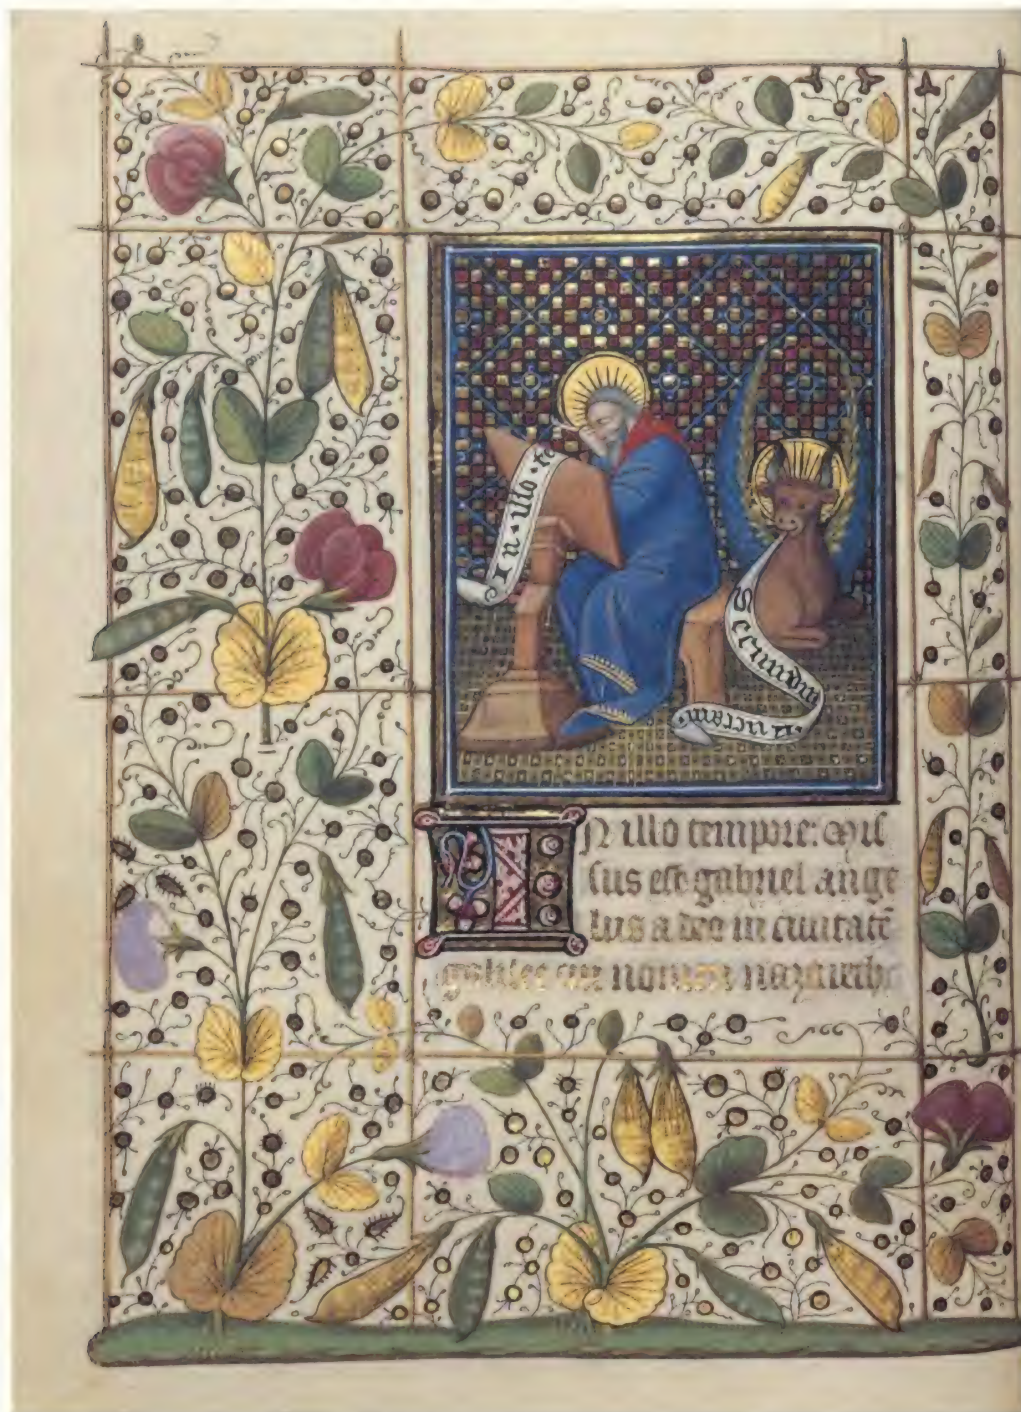 In · illo · te
Secundum
lucam.
IN illo tempore: Mis
sus est gabriel ange
lus a deo in ciuitatē
galilee cui nomen nazareth